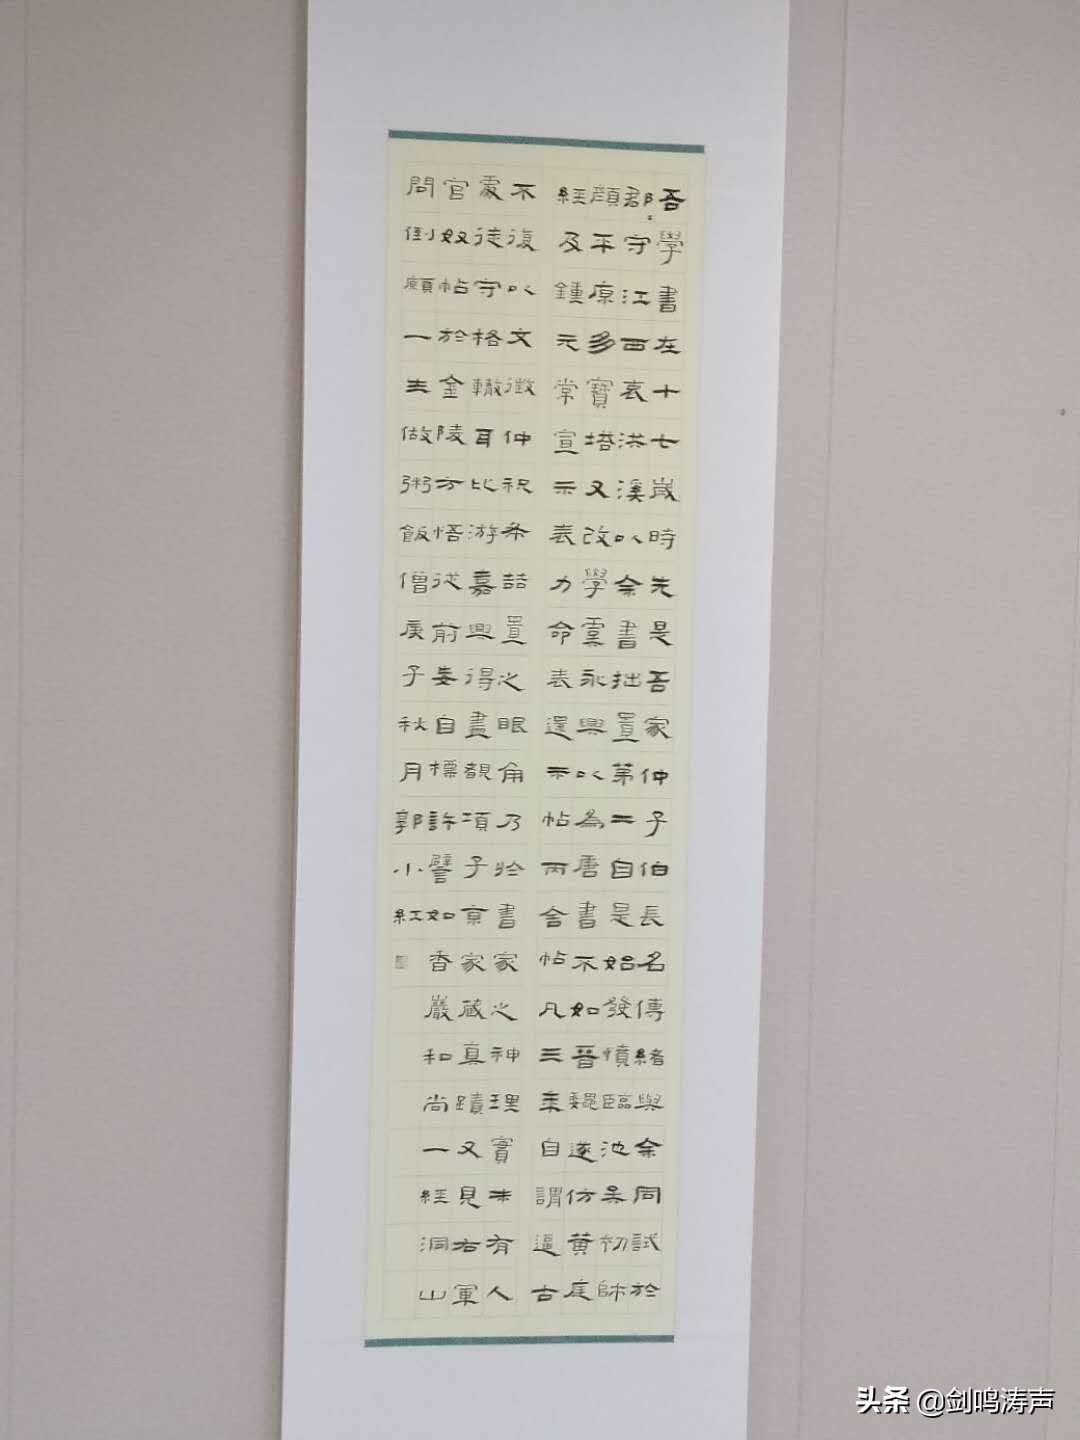 吾學書在十七歲時先是吾家仲子伯長名傳緒與余同試於
郡守江西袁洪溪以余書拙置第二自是始發憤臨池矣初師
顏平原多寶塔又改學虞永興以為唐書不如晉魏遂仿黃庭
經及鍾元常宣示表力命表還示帖丙舍帖凡三年自謂逼古
不復以文徵仲祝希喆置之眼角乃於書家之神理實未有入
處徒守格轍耳比游嘉興得盡覩項子京家藏真蹟又見右軍
官奴帖於金陵方悟從前妄自標許譬如香巖和尚一經洞山
問倒願一生做粥飯僧庚子秋月郭小紅
头条 @剑鸣涛声